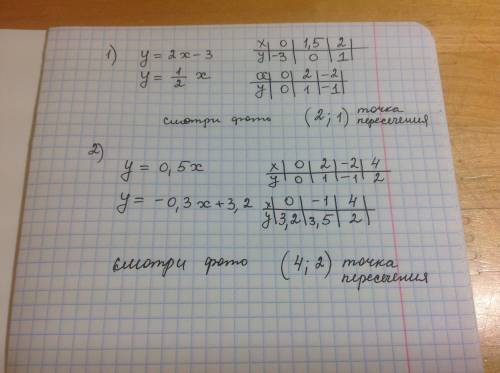 1) y = 2x - 3 x | 0 | 1,5 | 2
y | -3 | 0 | 1
y = 1/2 x x | 0 | 2 | -2
y | 0 | 1 | -1
смотри фото (2; 1) точка пересечения
2)
y = 0,5x x | 0 | 2 | -2 | 4
y | 0 | 1 | -1 | 2
y = -0,3x + 3,2 x | 0 | -1 | 4
y | 3,2 | 3,5 | 2
смотри фото (4; 2) точка пересечения